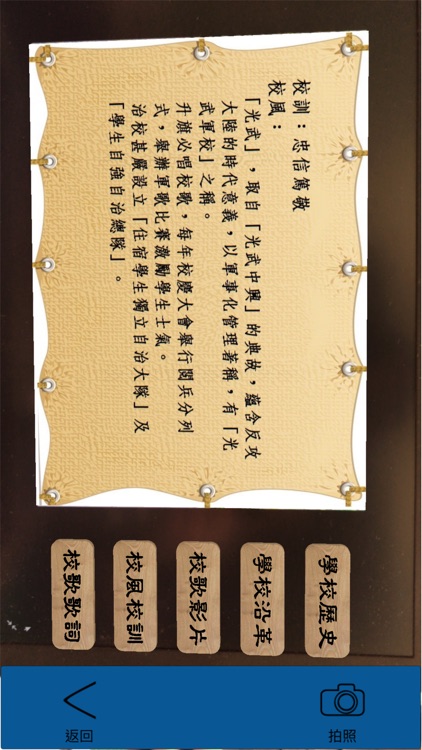 校訓：忠信篤敬
校風：
「光武」，取自「光武中興」的典故，蘊含反攻
大陸的時代意義，以軍事化管理著稱，有「光
武軍校」之稱。
升旗必唱校歌，每年校慶大會舉行閱兵分列
式，舉辦軍歌比賽激勵學生士氣。
治校甚嚴設立「住宿學生獨立自治大隊」及
「學生自強自治總隊」。
學校歷史
學校沿革
校歌影片
校風校訓
校歌歌詞
拍照
返回